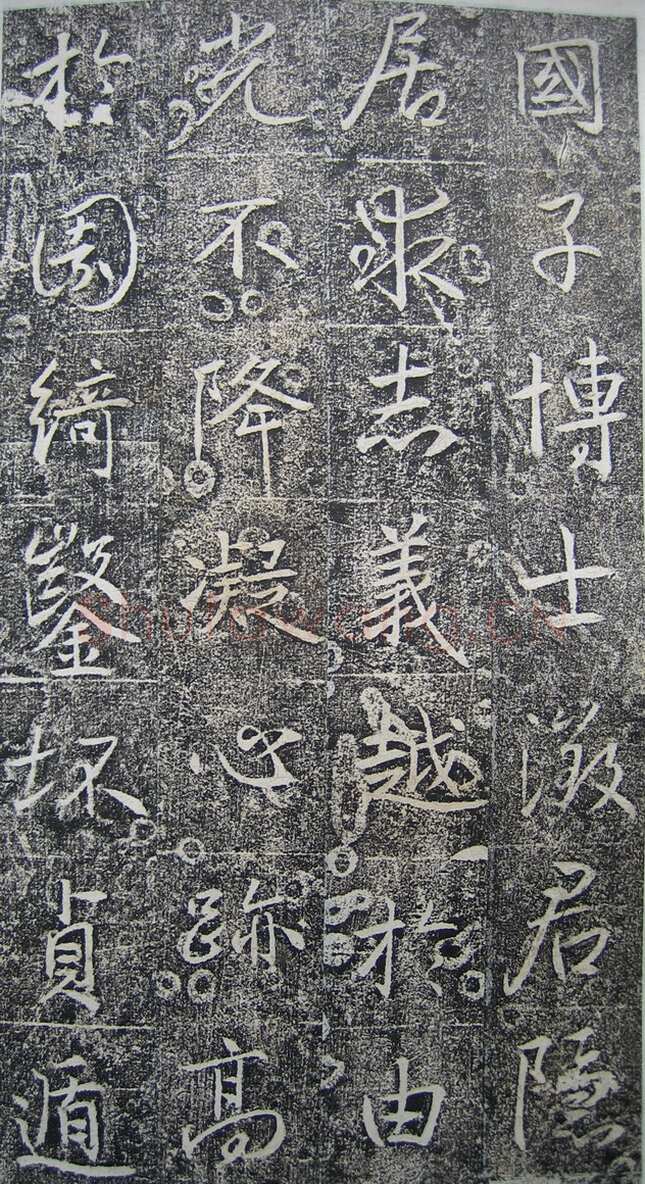 國子博士徵君隱
居求志義越於由
光不降凝心跡高
於園綺鑿坏貞遁
Shufawang.CN